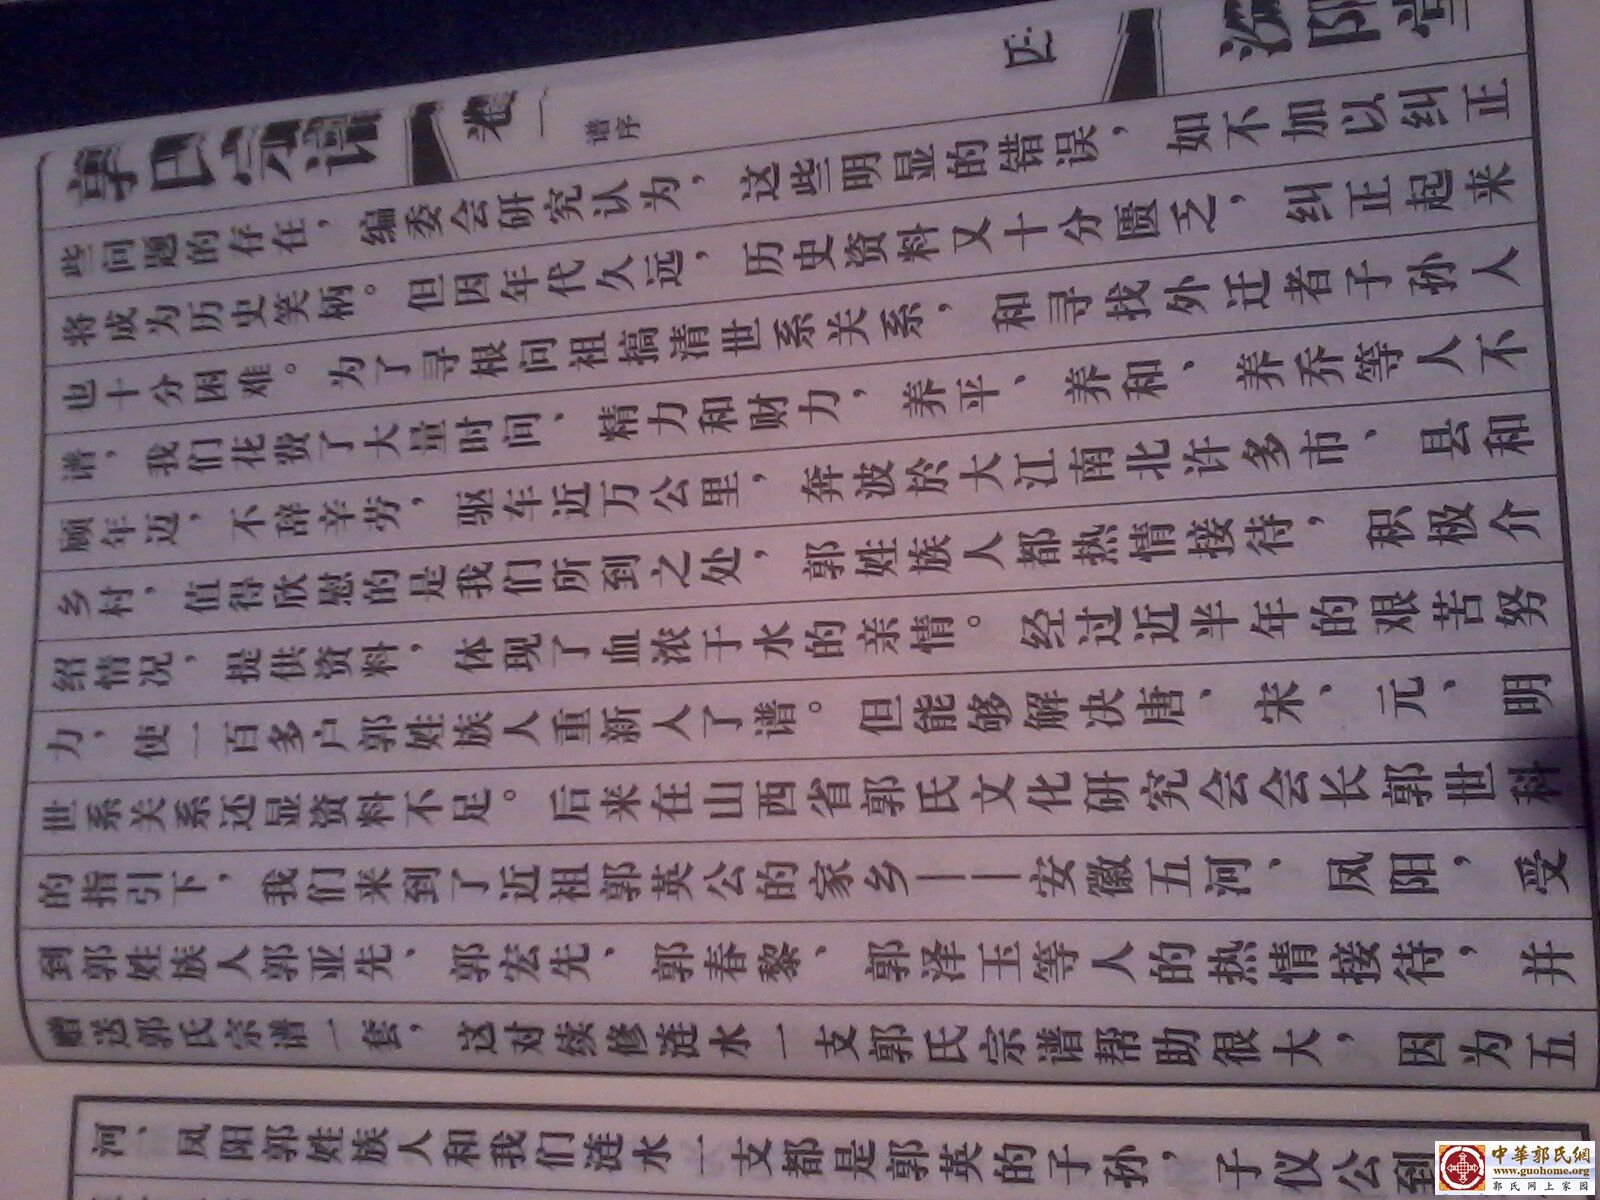 郭氏宗谱
卷一
谱序
汾阳堂
些问题的存在，编委会研究认为，这些明显的错误，如不加以纠正
将成为历史笑柄。但因年代久远，历史资料又十分匮乏，纠正起来
也十分困难。为了寻根问祖搞清世系关系，和寻找外迁者子孙人
谱，我们花费了大量时间、精力和财力，养平、养和、养乔等人不
顾年迈，不辞辛劳，驱车近万公里，奔波於大江南北许多市、县和
乡村，值得欣慰的是我们所到之处，郭姓族人都热情接待，积极介
绍情况，提供资料，体现了血浓于水的亲情。经过近半年的艰苦努
力，使一百多户郭姓族人重新人了谱。但能够解决唐、宋、元、明
世系关系还显资料不足。后来在山西省郭氏文化研究会会长郭世科
的指引下，我们来到了近祖郭英公的家乡——安徽五河、凤阳，受
到郭姓族人郭亚先、郭宏先、郭春黎、郭泽玉等人的热情接待，并
赠送郭氏宗谱一套，这对续修涟水一支郭氏宗谱帮助很大，因为五
河、凤阳郭姓族人和我们涟水一支都是郭英的子孙，子仪公到
中華郭氏網
www.guohome.org
郭氏网上家园